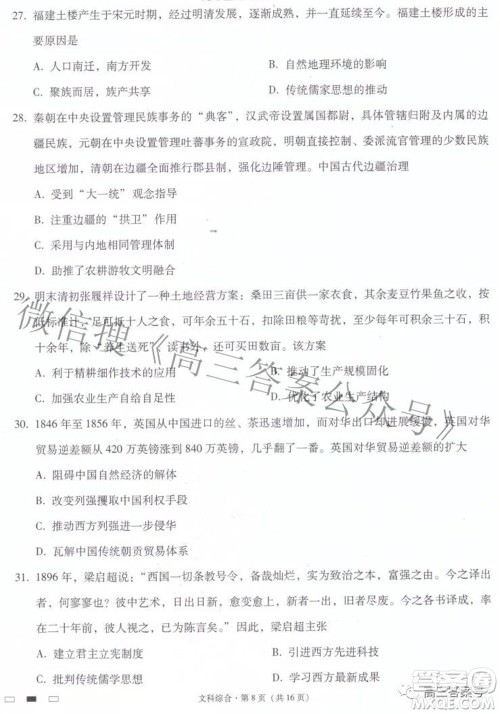 27. 福建土楼产生于宋元时期，经过明清发展，逐渐成熟，并一直延续至今。福建土楼形成的主
要原因是
A. 人口南迁，南方开发
B. 自然地理环境的影响
C. 聚族而居，族产共享
D. 传统儒家思想的推动
28. 秦朝在中央设置管理民族事务的“典客”，汉武帝设置属国都尉，具体管辖归附及内属的边
疆民族，元朝在中央设置管理吐蕃事务的宣政院，明朝直接控制、委派流官管理的少数民族
地区增加，清朝在边疆全面推行郡县制，强化边陲管理。中国古代边疆治理
A. 受到“大一统”观念指导
B. 注重边疆的“拱卫”作用
C. 采用与内地相同管理体制
D. 助推了农耕游牧文明融合
29. 明末清初张履祥设计了一种土地经营方案：桑田三亩供一家衣食，其余麦豆竹果鱼之收，
低标准计，足可贩十人之食，可余三十石，扣除田租劳等苛费，可年余五十石，积
十余年，除 养生送死 读书外，还可置田二百亩。该方案
A. 利于精耕细作技术的应用
B. 推动了生产规模固化
C. 加强农业生产自给自足性
D. 优化了农业生产结构
30. 1846 年至 1856 年，英国从中国进口的丝、茶迅速增加，而对华出口却进展缓慢，英国对华
贸易逆差额从 420 万英镑涨到 840 万英镑，几乎翻了一番。英国对华贸易逆差额的扩大
A. 阻碍中国自然经济的解体
B. 改变列强攫取中国利权手段
C. 推动西方列强进一步侵华
D. 瓦解中国传统朝贡贸易体系
31. 1896 年，梁启超说：“西国一切条教号令，备哉灿烂，实致治之本，富强之由。今之译出
者，何寥寥也！彼中艺术，日出日新，愈变愈上，新者一出，旧者尽废。今之各书译成，率
在二十年前，彼人视之，已为陈言矣。”因此，梁启超主张
A. 建立君主立宪制度
B. 引进西方先进制度
C. 批判传统儒学思想
D. 学习西方最新成果
文科综合·第 8 页（共 16 页）
微信搜《高三答案公众号》
高三答案号
答案圈
MXQE.COM